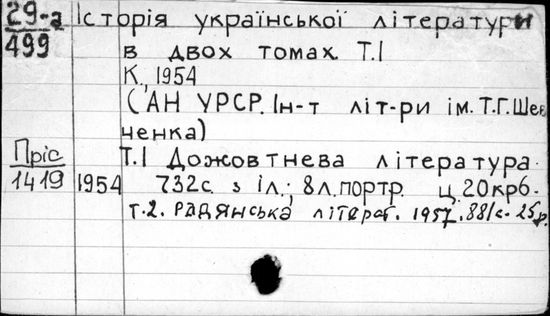 29-а Історія української літератури
499 в двох томах. Т.I
К., 1954
(АН УРСР. Ін-т літ-ри ім. Т.Г.Шев
ченка)
Пріс Т.I Дожовтнева література.
1419 1954 732с. з іл.; 8л.портр. ц.20крб.
т.2. Радянська літерат. 1957. 881с. 25р.